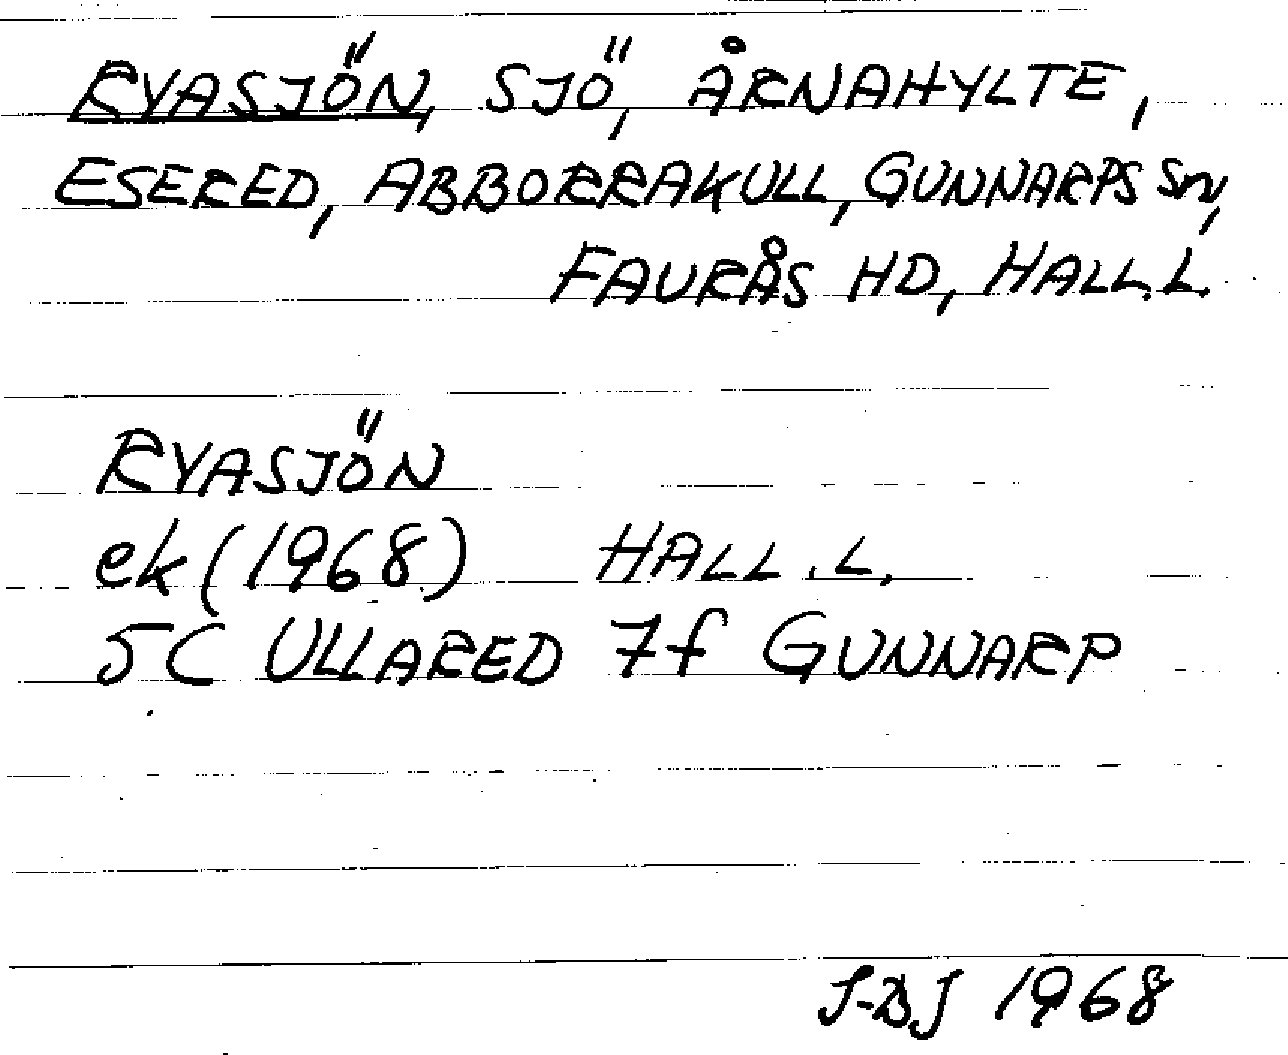 RYASJÖN, SJÖ, ÅRNAHYLTE,
ESERED, ABBORRAKULL, GUNNARPS SN,
FAURÅS HD, HALL.L.
RYASJÖN
ek (1968) HALL.L.
5C ULLARED 7f GUNNARP
J-BJ 1968